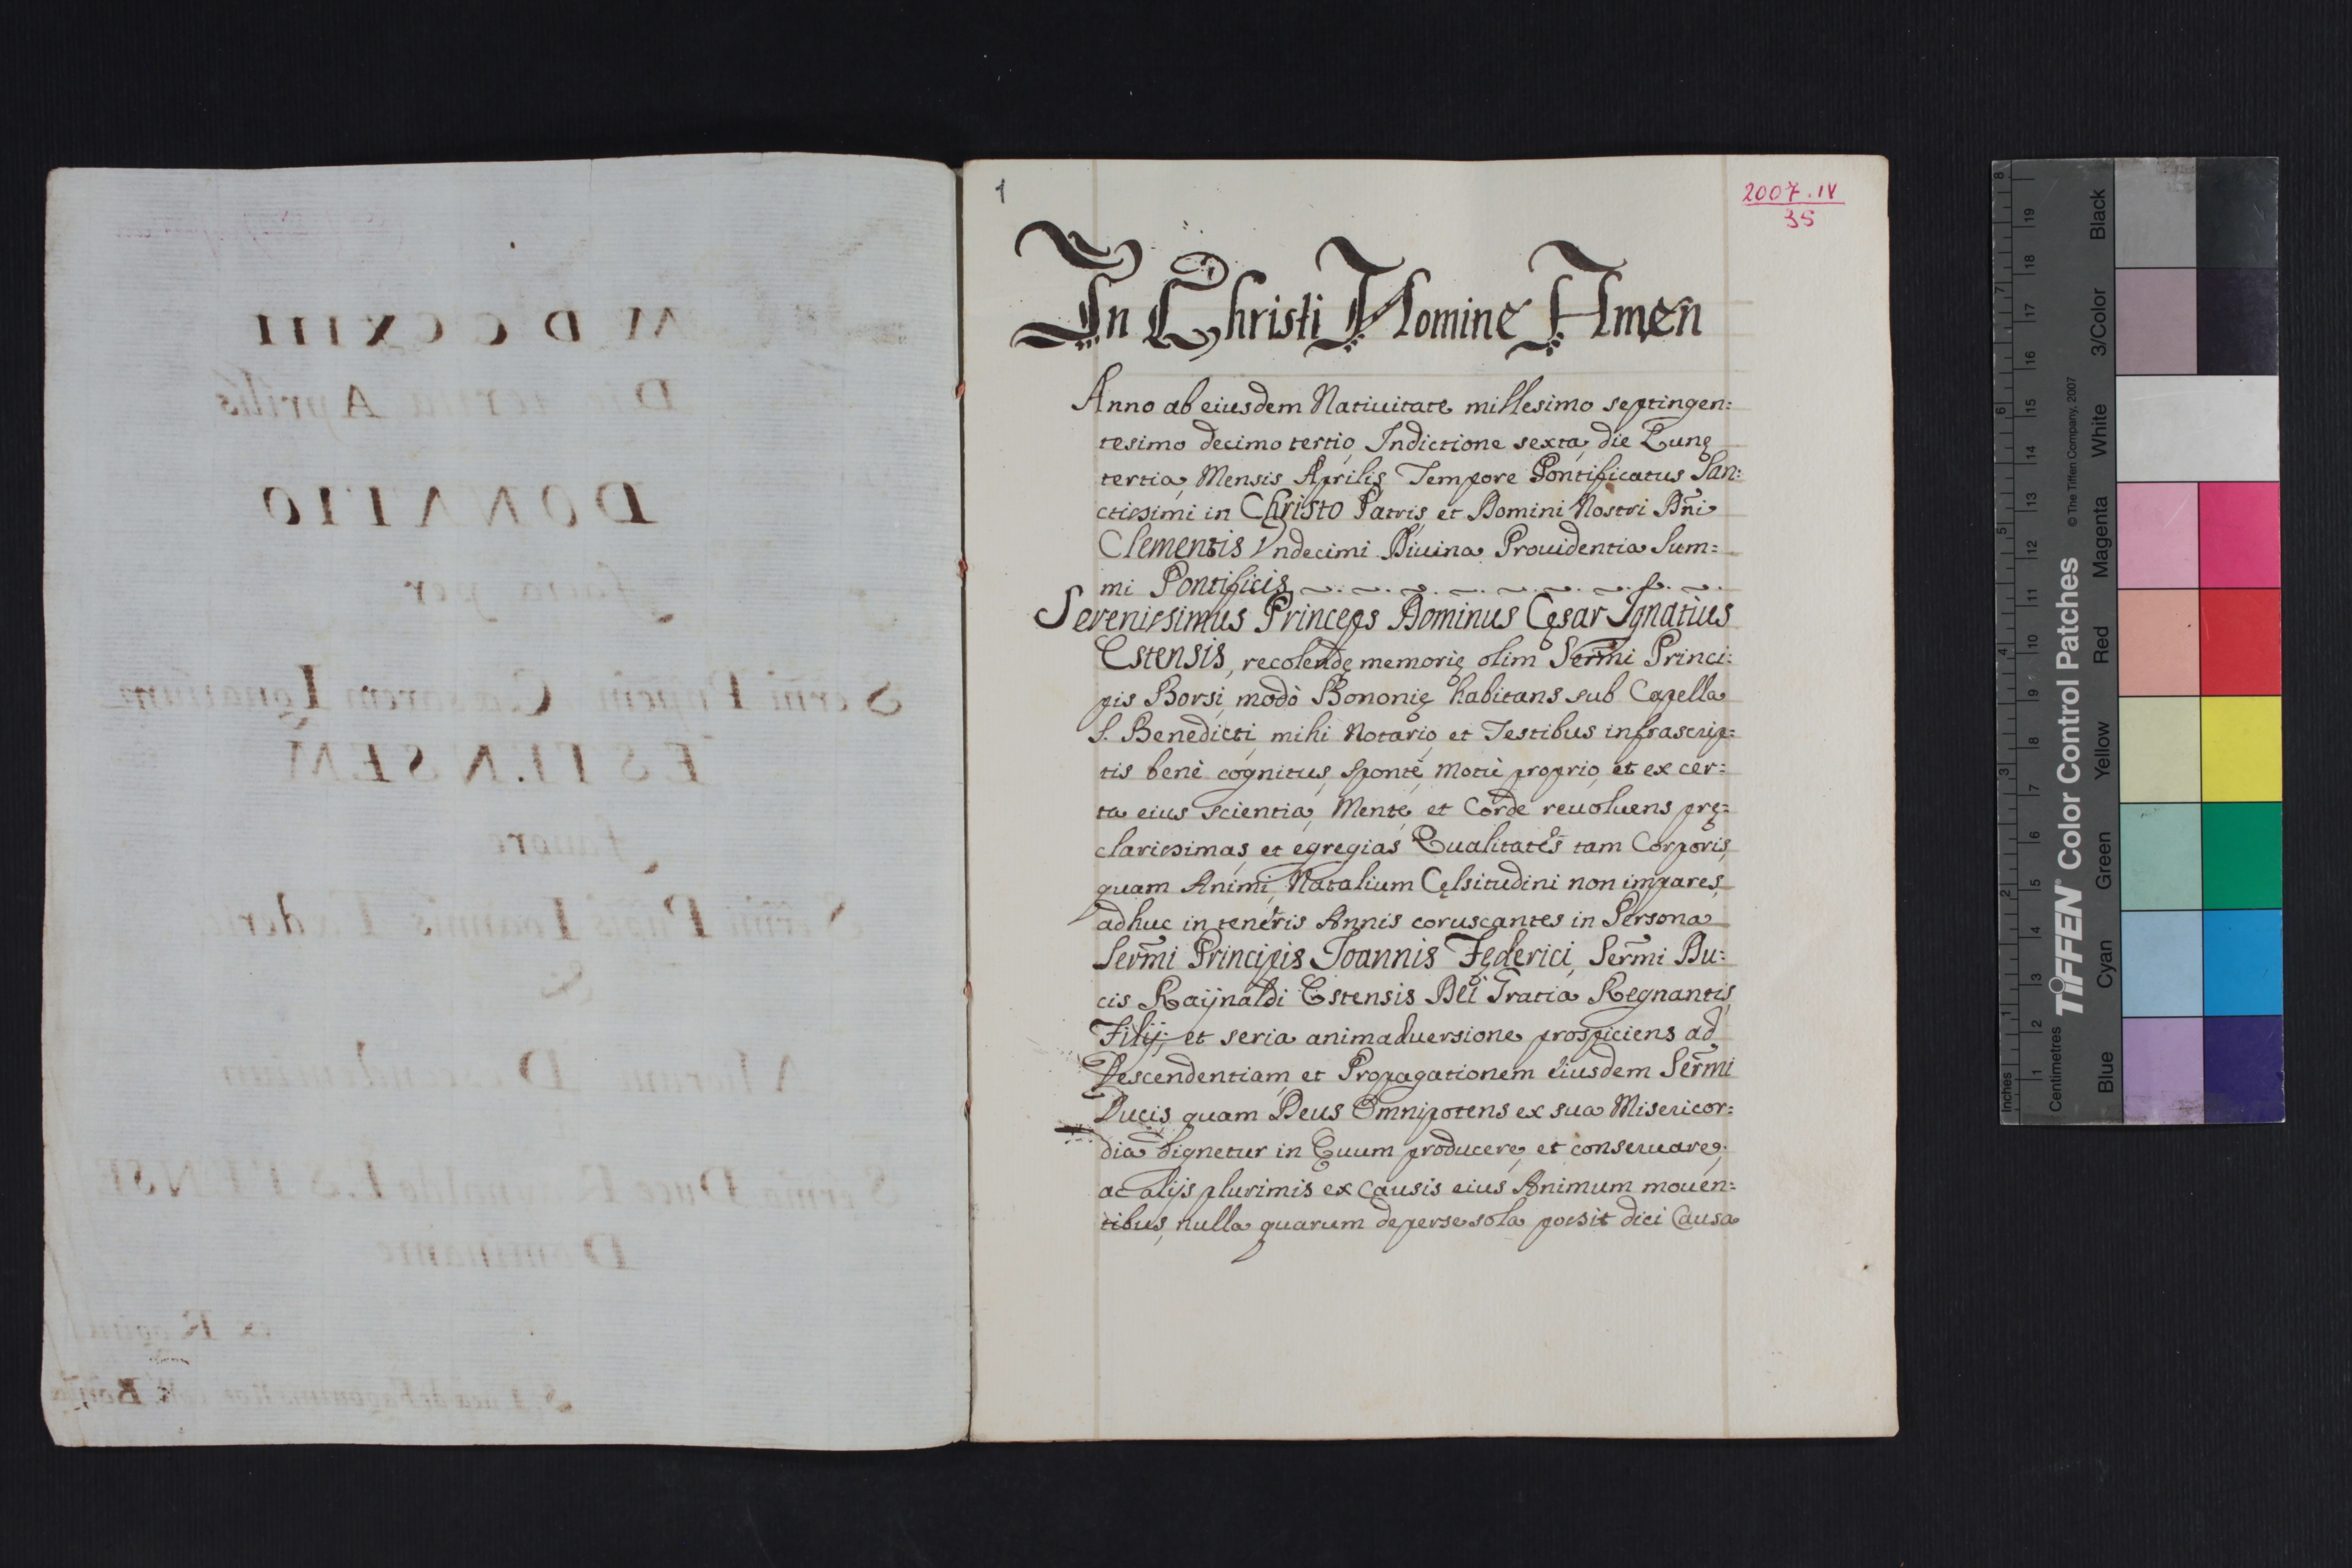 MDCCXIII
Die tertia Aprilis
DONATIO
facta per
Serm̃i Pnpem Cæsarem Ignatium
ESTENSEM
fauore
Serm̃i Pnpis Ioannis Fæderici
&
Aliorum Descendentium
Sermo Duce Raynaldo ESTENSE
Dominante
1
2007.IV
35
In Christi Nomine Amen
Anno ab eiusdem Natiuitate millesimo septingen:
tesimo decimo tertio, Indictione sexta, die Lunę
tertia, Mensis Aprilis Tempore Pontificatus San:
ctissimi in Christo Patris, et Domini Nostri Dñi
Clementis Vndecimi Diuina Prouidentia Sum:
mi Pontificis
Serenissimus Princeps Dominus Cęsar Ignatius
Estensis, recolendę memorię olim Serm̃i Princi:
pis Borsi, modò Bononię habitans sub Capella
S. Benedicti, mihi Notario, et Testibus infrascrip:
tis benè cognitus, sponte, Motu proprio, et ex cer:
ta eius scientia, Mente, et Corde reuoluens pre̜:
clarissimas, et egregias Qualitates tam Corporis,
quam Animi, Natalium Cęlsitudini non impares,
adhuc in teneris Annis coruscantes in Persona
Serm̃i Principis Joannis Fęderici, Serm̃i Du:
cis Raÿnaldi Estensis Dei Gratia Regnantis,
Filij; et seria animaduersione prospiciens ad
Descendentiam, et Propagationem eiusdem Serm̃i
Ducis, quam Deus Omnipotens ex sua Misericor:
dia dignetur in Ęuum producere, et conseruare;
ac alijs plurimis ex Causis eius Animum mouen:
tibus, nulla quarum de per se sola possit dici Causa
Inches
Centimetres
TIFFEN® Color Control Patches
© The Tiffen Company, 2007
Blue
Cyan
Green
Yellow
Red
Magenta
White
3/Color
Black
1 2 3 4 5 6 7 8
1 2 3 4 5 6 7 8 9 10 11 12 13 14 15 16 17 18 19